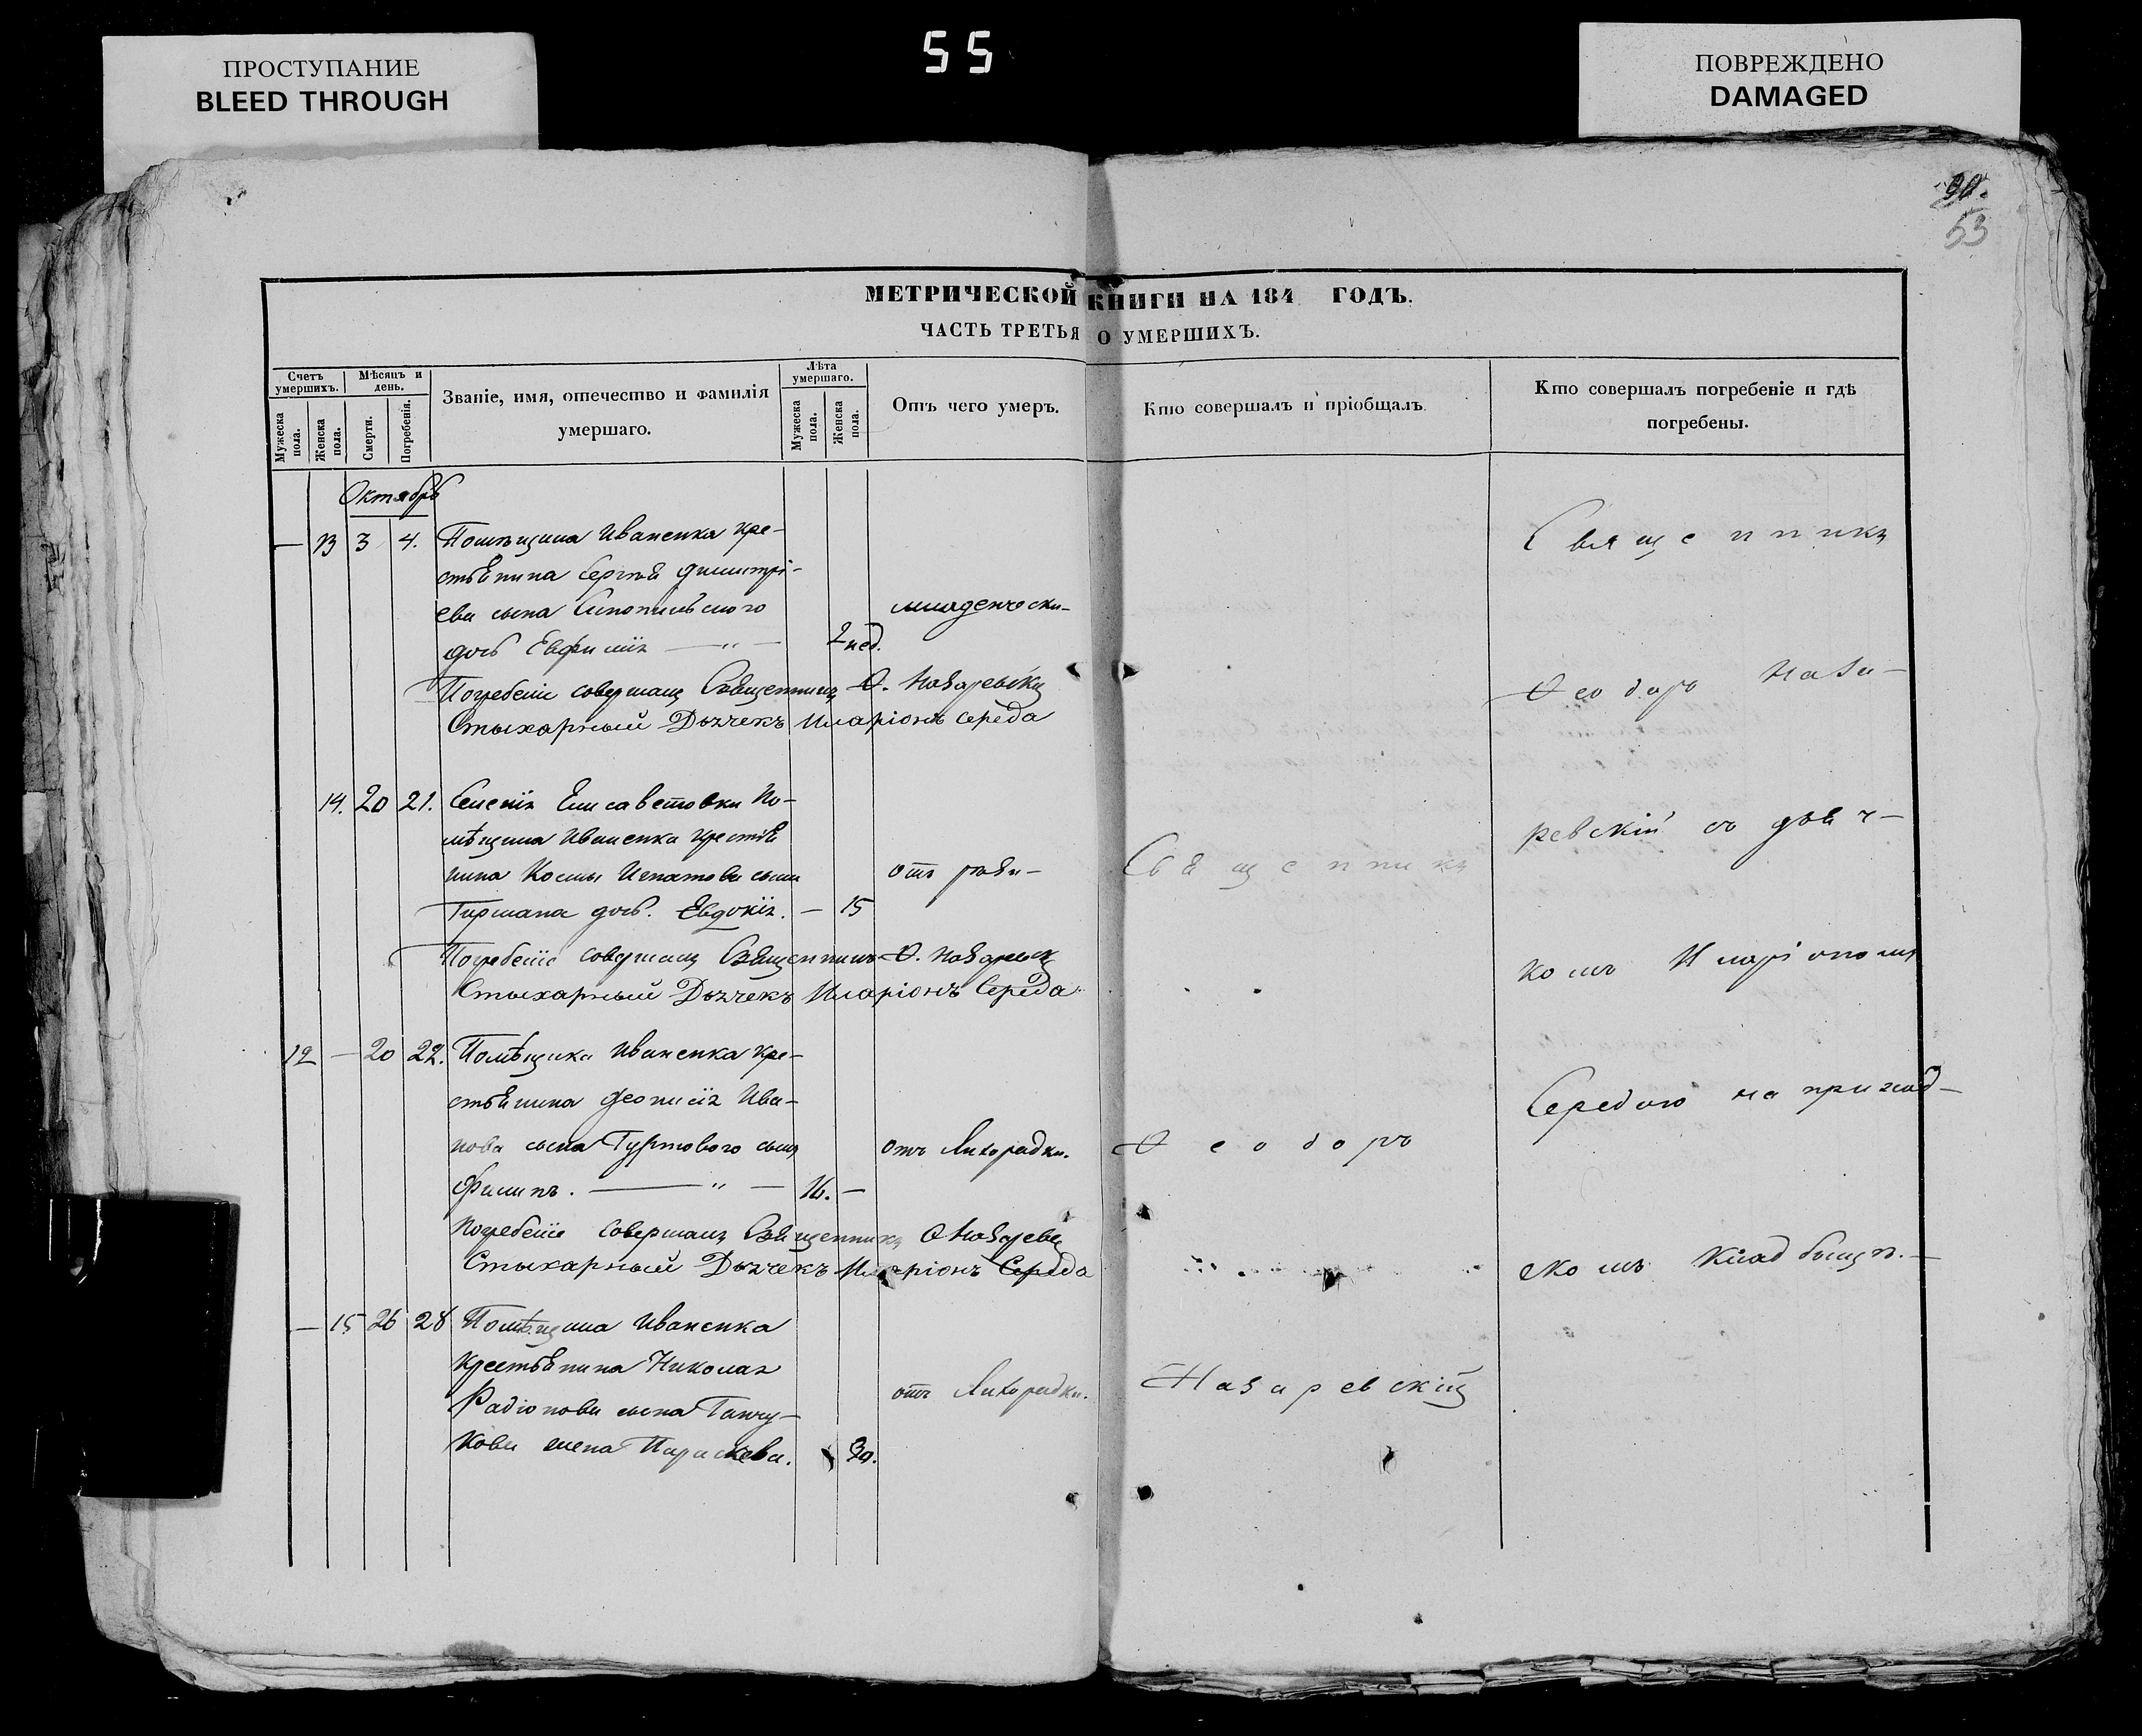 ПРОСТУПАНИЕ
BLEED THROUGH
55
ПОВРЕЖДЕНО
DAMAGED
90.
53
МЕТРИЧЕСКОЙ КНИГИ НА 184 ГОДЪ.
ЧАСТЬ ТРЕТЬЯ О УМЕРШИХЪ.
Счетъ умершихъ.
Мужеска пола.
Женска пола.
Мѣсяцъ и день.
Смерти.
Погребенія.
Званіе, имя, отечество и фамилія
умершаго.
Лѣта умершаго.
Мужеска пола.
Женска пола.
Отъ чего умеръ.
Кто совершалъ и пріобщалъ.
Кто совершалъ погребеніе и гдѣ
погребены.
Октябрь
— 13 3 4. Помѣщика Иваненка кре-
стьянина Сергѣя Димитрі-
ева сына
дочь Евфимія — " — 2 нед. младенчески-
Погребеніе совершалъ Священникъ Ѳ. Назаревскій
Стыхарный Дьячекъ Иларіонъ Середа
14. 20 21. Селенія Елисаветовки По-
мѣщика Иваненка крестья
нина Космы Игнатова сына
дочь. Евдокія. — 15
Погребеніе совершалъ Священникъ Ѳ. Назаревскій
Стыхарный Дьячекъ Иларіонъ Середа
12 — 20 22. Помѣщика Иваненка кре-
стьянина Деонисія Ива-
нова сына Гуртового сынъ
Филипъ. — " — 16. — отъ Лихорадки.
Погребеніе совершалъ Священникъ Ѳ Назаревскій
Стыхарный Дьячекъ Иларіонъ Середа
— 15 26 28 Помѣщика Иваненка
Крестьянина Николая
Радіонова сына
жена Параскева. 30. отъ Лихорадки.
Священникъ
Ѳеодоръ
Назаревскій
Священникъ
Ѳеодоръ Наза-
ревскій съ дьяч-
комъ Иларіономъ
Середою на приход-
скомъ кладбищѣ.